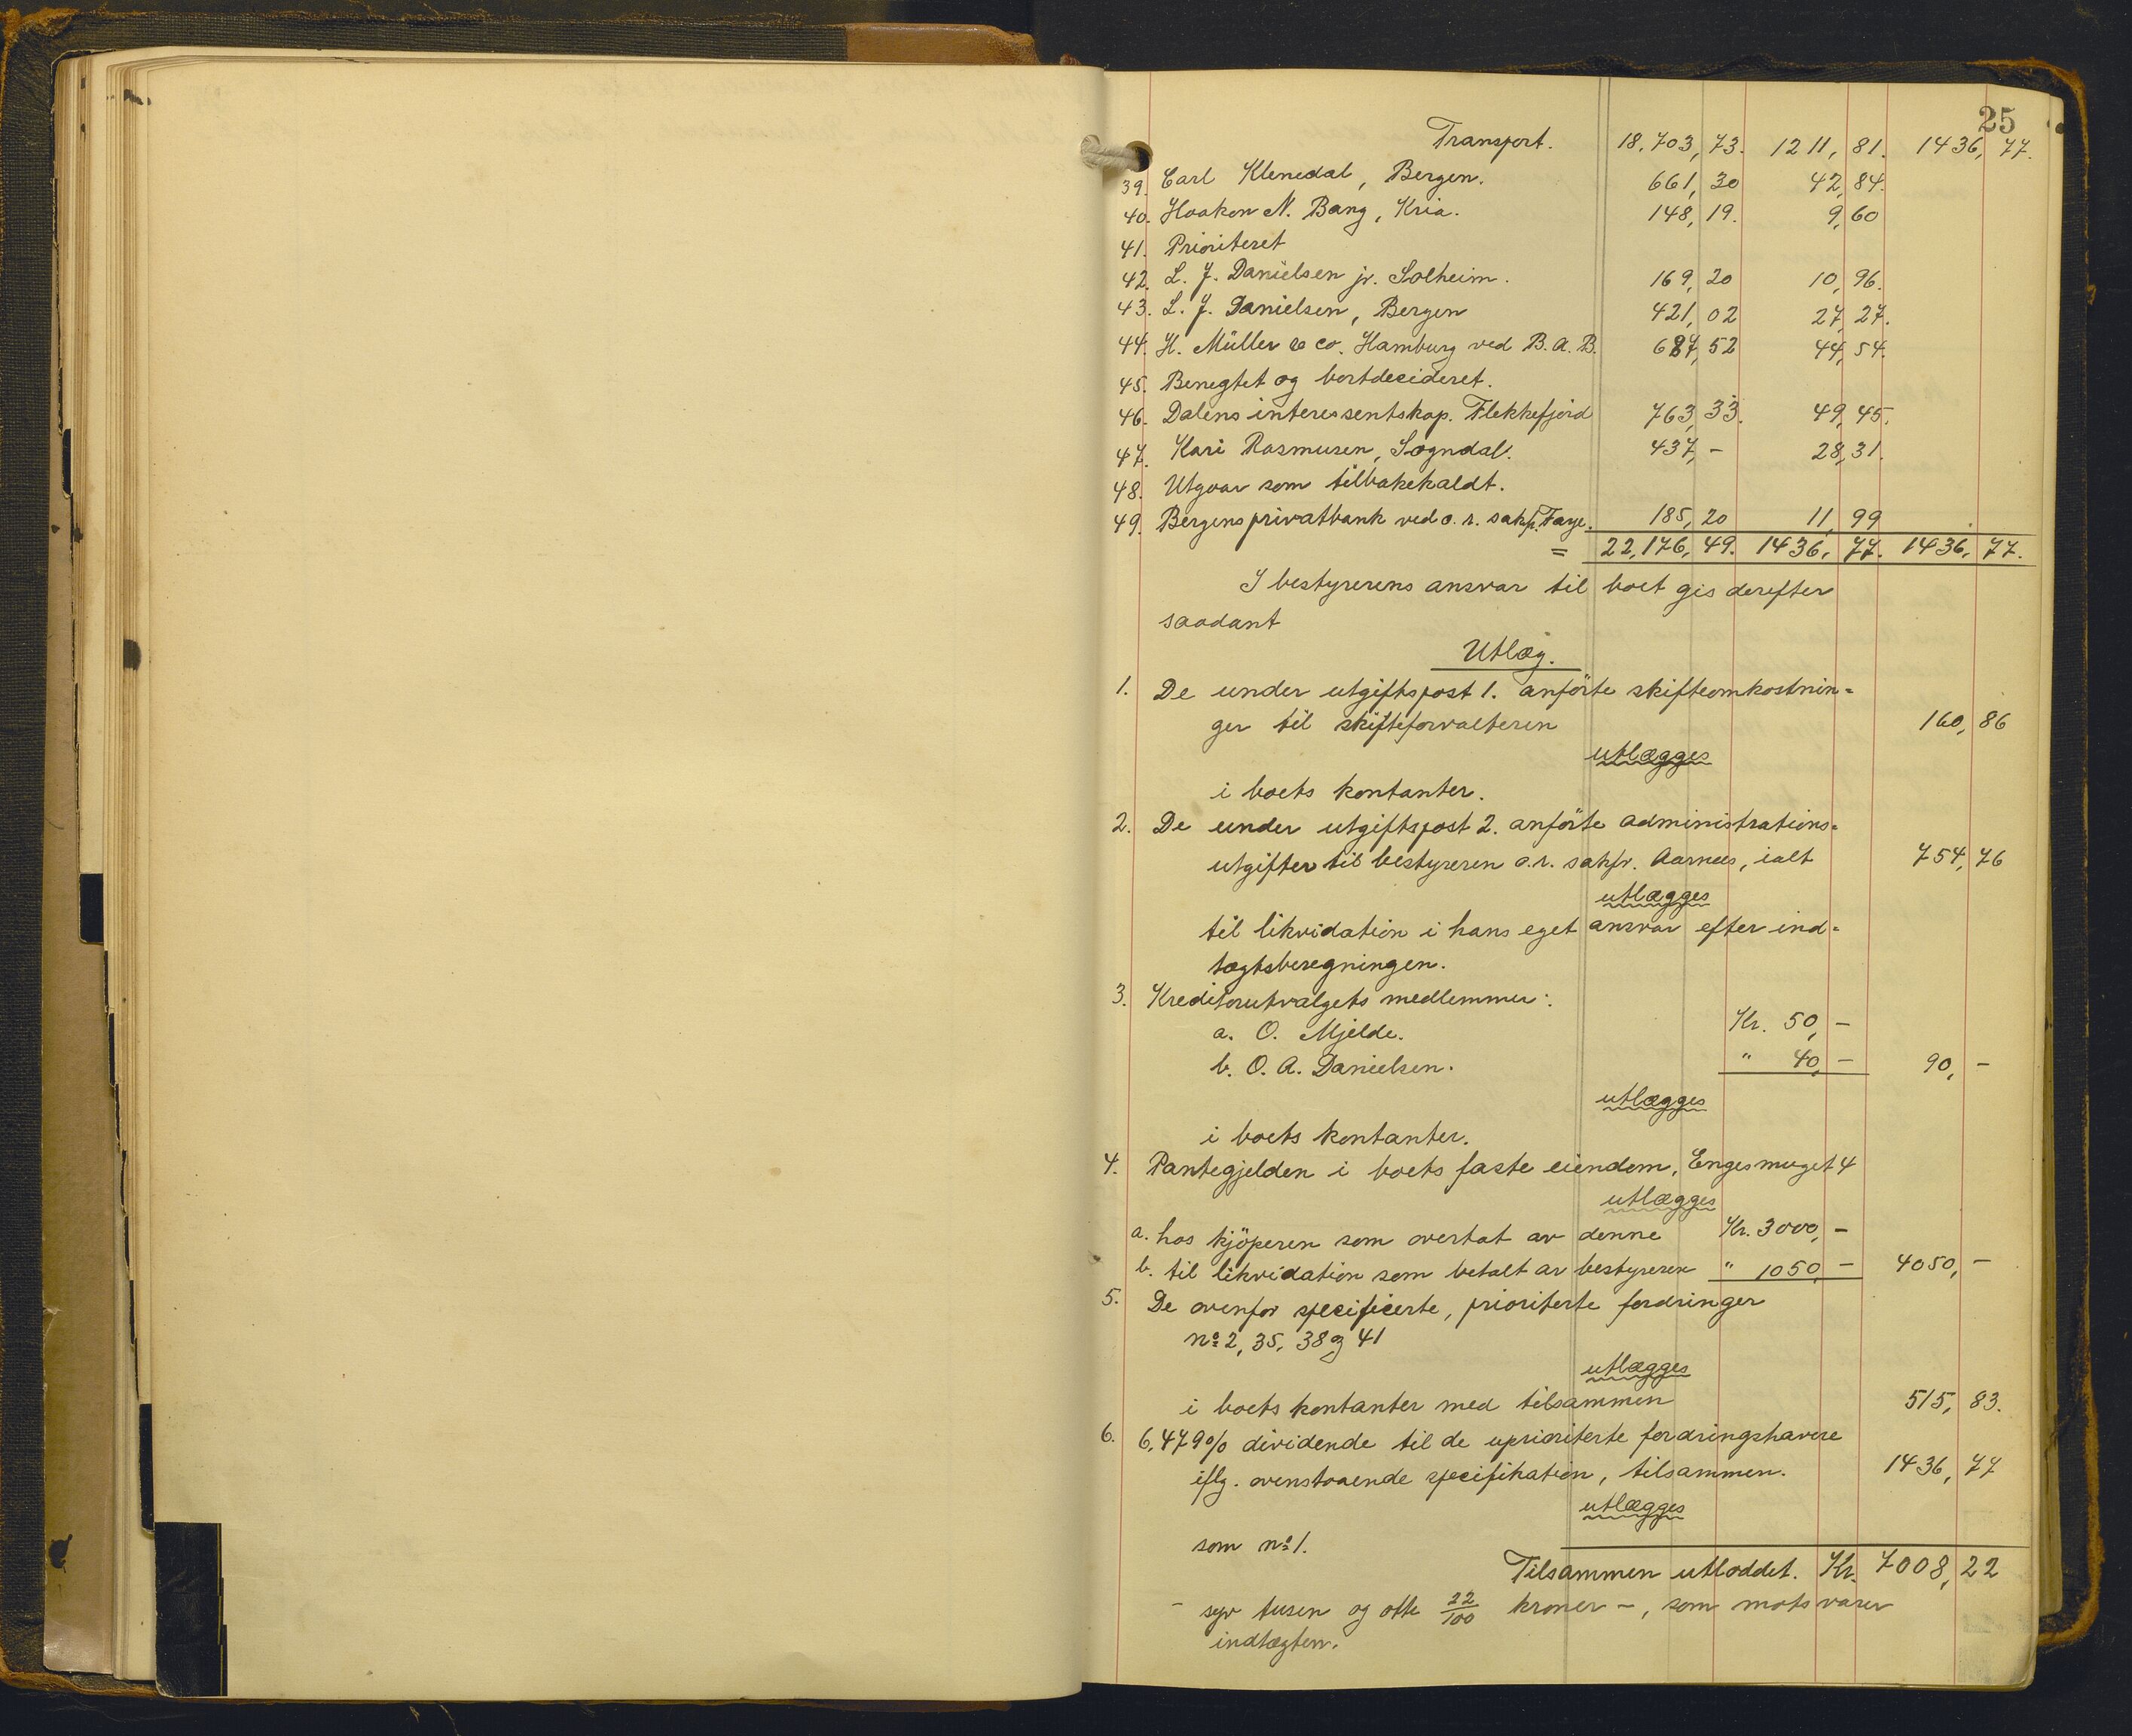 25
Transport. 18.703,73. 1211,81. 1436,77.
39. Carl Klenedal, Bergen. 661,30 42,84.
40. Haakon N. Bang, Kria. 148,19. 9,60
41. Prioritert
42. L. J. Danielsen jr. Solheim. 169,20 10,96.
43. L. J. Danielsen, Bergen 421,02 27,27.
44. H. Müller & co. Hamburg ved B. A. B. 687,52 44,54.
45. Benegtet og bortdecideret.
46. Dalens interessentskap. Flekkefjord 763,33. 49,45.
47. Kari Rasmusen, Sogndal. 437,- 28,31.
48. Utgaar som tilbakekaldt.
49. Bergens privatbank ved o. r. sakf. Faye. 185,20 11,99
= 22,176,49. 1436,77. 1436,77.
I bestyrerens ansvar til boet gis derefter
saadant
Utlæg.
1. De under utgiftspost 1. anförte skifteomkostnin=
ger til skifteforvalteren 160,86
utlægges
i boets kontanter.
2. De under utgiftspost 2. anförte administrations=
utgifter til bestyreren o. r. sakfr. Aarnes, ialt 754,76
utlægges
til likvidation i hans eget ansvar efter ind=
tægtsberegningen.
3. Kreditorutvalgets medlemmer:
a. O. Mjelde. Kr. 50,-
b. O. A. Danielsen. " 40,- 90,-
utlægges
i boets kontanter.
4. Pantegjelden i boets faste eiendom, Engesmuget 4
utlægges
a. hos kjöperen som overtat av denne Kr. 3000,-
b. til likvidation som betalt av bestyreren " 1050,- 4050,-
5. De ovenfor specificerte, prioriterte fordringer
nº 2, 35, 38 og 41
utlægges
i boets kontanter med tilsammen 515,83.
6. 6,479% dividende til de uprioriterte fordringshavere
iflg. ovenstaaende specifikation, tilsammen. 1436,77
utlægges
som nº 1.
Tilsammen utloddet. Kr. 7008,22
- syv tusen og otte 22/100 kroner -, som motsvarer
indtægten.